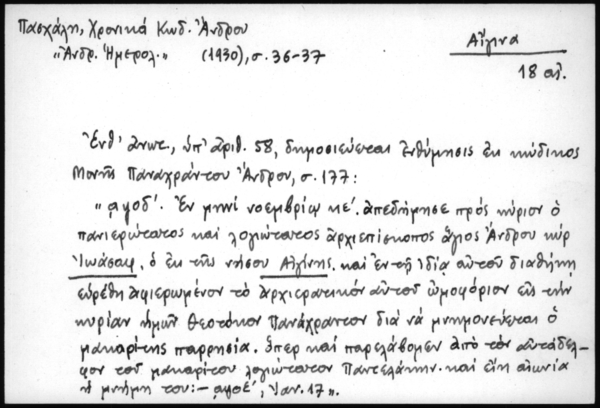 Πασχάλη, Χρονικά Κωδ. Ἄνδρου
"Ἀνδρ. Ἡμερολ." (1930), σ. 36-37
Αἴγινα
18 αἰ.
Ἐνθ' ἄνωτ., ὑπ' ἀριθ. 58, δημοσιεύεται ἐνθύμησις ἐκ κώδικος
Μονῆς Παναχράντου Ἄνδρου, σ. 177:
"͵αψοδ'. Ἐν μηνὶ νοεμβρίῳ κε'. ἀπεδήμησε πρὸς κύριον ὁ
πανιερώτατος καὶ λογιώτατος ἀρχιεπίσκοπος ἅγιος Ἄνδρου κύρ
Ἰωάσαφ, ὁ ἐκ τῆς νήσου Αἰγίνης. καὶ ἐν τῇ ἰδίᾳ αὐτοῦ διαθήκῃ
εὑρέθη ἀφιερωμένον τὸ ἀρχιερατικόν αὐτοῦ ὠμοφόριον εἰς τὴν
κυρίαν ἡμῶν Θεοτόκον Πανάχραντον διὰ νὰ μνημονεύεται ὁ
μακαρίτης παρρησίᾳ. ὅπερ καὶ παρελάβομεν ἀπὸ τὸν αὐτάδελ-
φον τοῦ μακαρίτου λογιώτατον Παντελάκην. καὶ εἴη αἰωνία
ἡ μνήμη του:- ͵αψοέ', Ἰαν. 17".